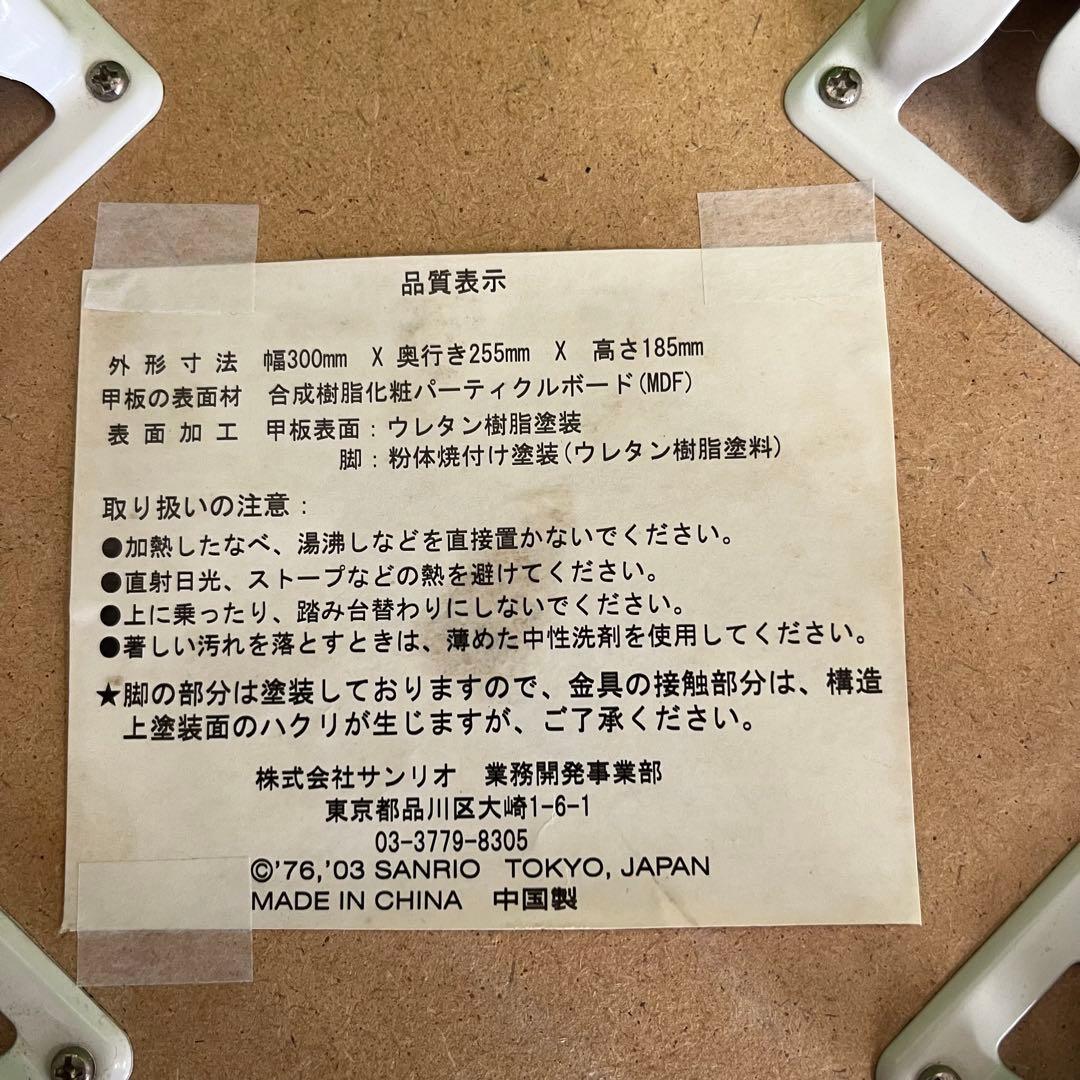 品質表示
外形寸法 幅300mm X 奥行き255mm X 高さ185mm
甲板の表面材 合成樹脂化粧パーティクルボード(MDF)
表面加工 甲板表面：ウレタン樹脂塗装
脚：粉体焼付け塗装(ウレタン樹脂塗料)
取り扱いの注意：
●加熱したなべ、湯沸しなどを直接置かないでください。
●直射日光、ストーブなどの熱を避けてください。
●上に乗ったり、踏み台替わりにしないでください。
●著しい汚れを落とすときは、薄めた中性洗剤を使用してください。
★脚の部分は塗装しておりますので、金具の接触部分は、構造
上塗装面のハクリが生じますが、ご了承ください。
株式会社サンリオ 業務開発事業部
東京都品川区大崎1-6-1
03-3779-8305
©'76,'03 SANRIO TOKYO, JAPAN
MADE IN CHINA 中国製